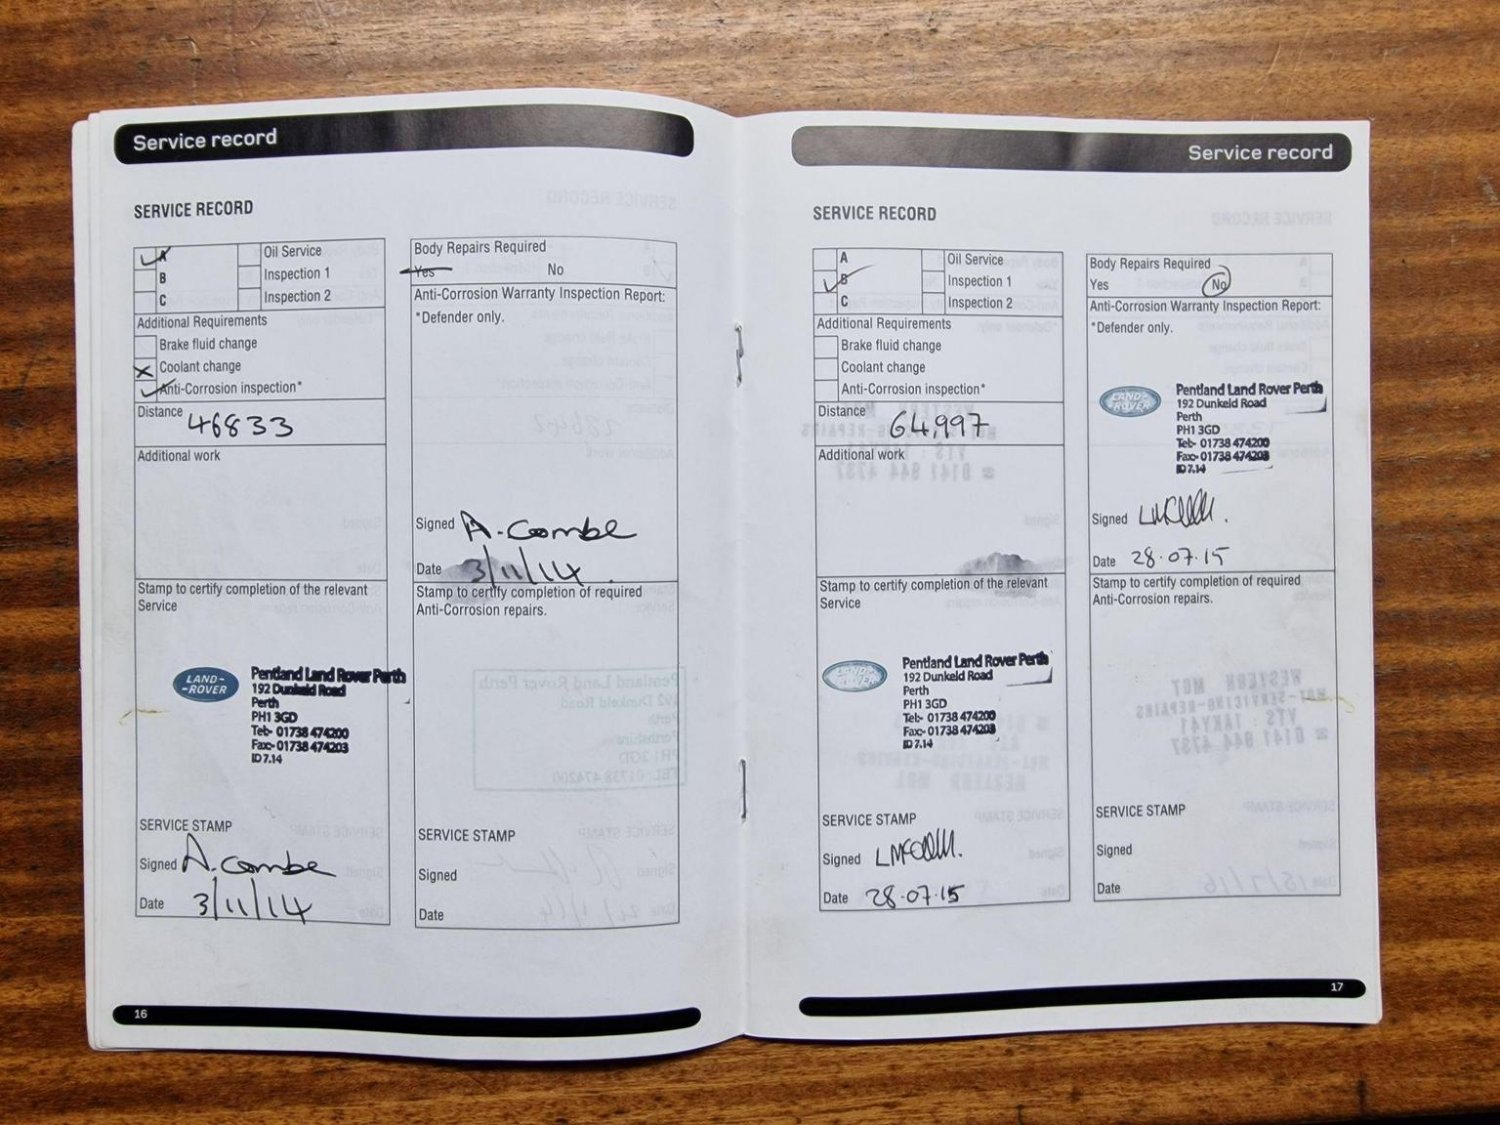 Service record
SERVICE RECORD
A Oil Service
B Inspection 1
C Inspection 2
Additional Requirements
Brake fluid change
Coolant change
Anti-Corrosion inspection*
Distance 46833
Additional work
Stamp to certify completion of the relevant
Service
LAND-
-ROVER
Pentland Land Rover Perth
192 Dunkeld Road
Perth
PH1 3GD
Tel:- 01738 474200
Fax:- 01738 474203
ID 7.14
SERVICE STAMP
Signed A. Combe
Date 3/11/14
Body Repairs Required
Yes No
Anti-Corrosion Warranty Inspection Report:
*Defender only.
Signed A. Combe
Date 3/11/14
Stamp to certify completion of required
Anti-Corrosion repairs.
SERVICE STAMP
Signed
Date
16
Service record
SERVICE RECORD
A Oil Service
B Inspection 1
C Inspection 2
Additional Requirements
Brake fluid change
Coolant change
Anti-Corrosion inspection*
Distance 64,997
Additional work
Stamp to certify completion of the relevant
Service
LAND-
-ROVER
Pentland Land Rover Perth
192 Dunkeld Road
Perth
PH1 3GD
Tel:- 01738 474200
Fax:- 01738 474203
ID 7.14
SERVICE STAMP
Signed
Date 28.07.15
Body Repairs Required
Yes No
Anti-Corrosion Warranty Inspection Report:
*Defender only.
LAND-
-ROVER
Pentland Land Rover Perth
192 Dunkeld Road
Perth
PH1 3GD
Tel:- 01738 474200
Fax:- 01738 474203
ID 7.14
Signed
Date 28.07.15
Stamp to certify completion of required
Anti-Corrosion repairs.
SERVICE STAMP
Signed
Date
17